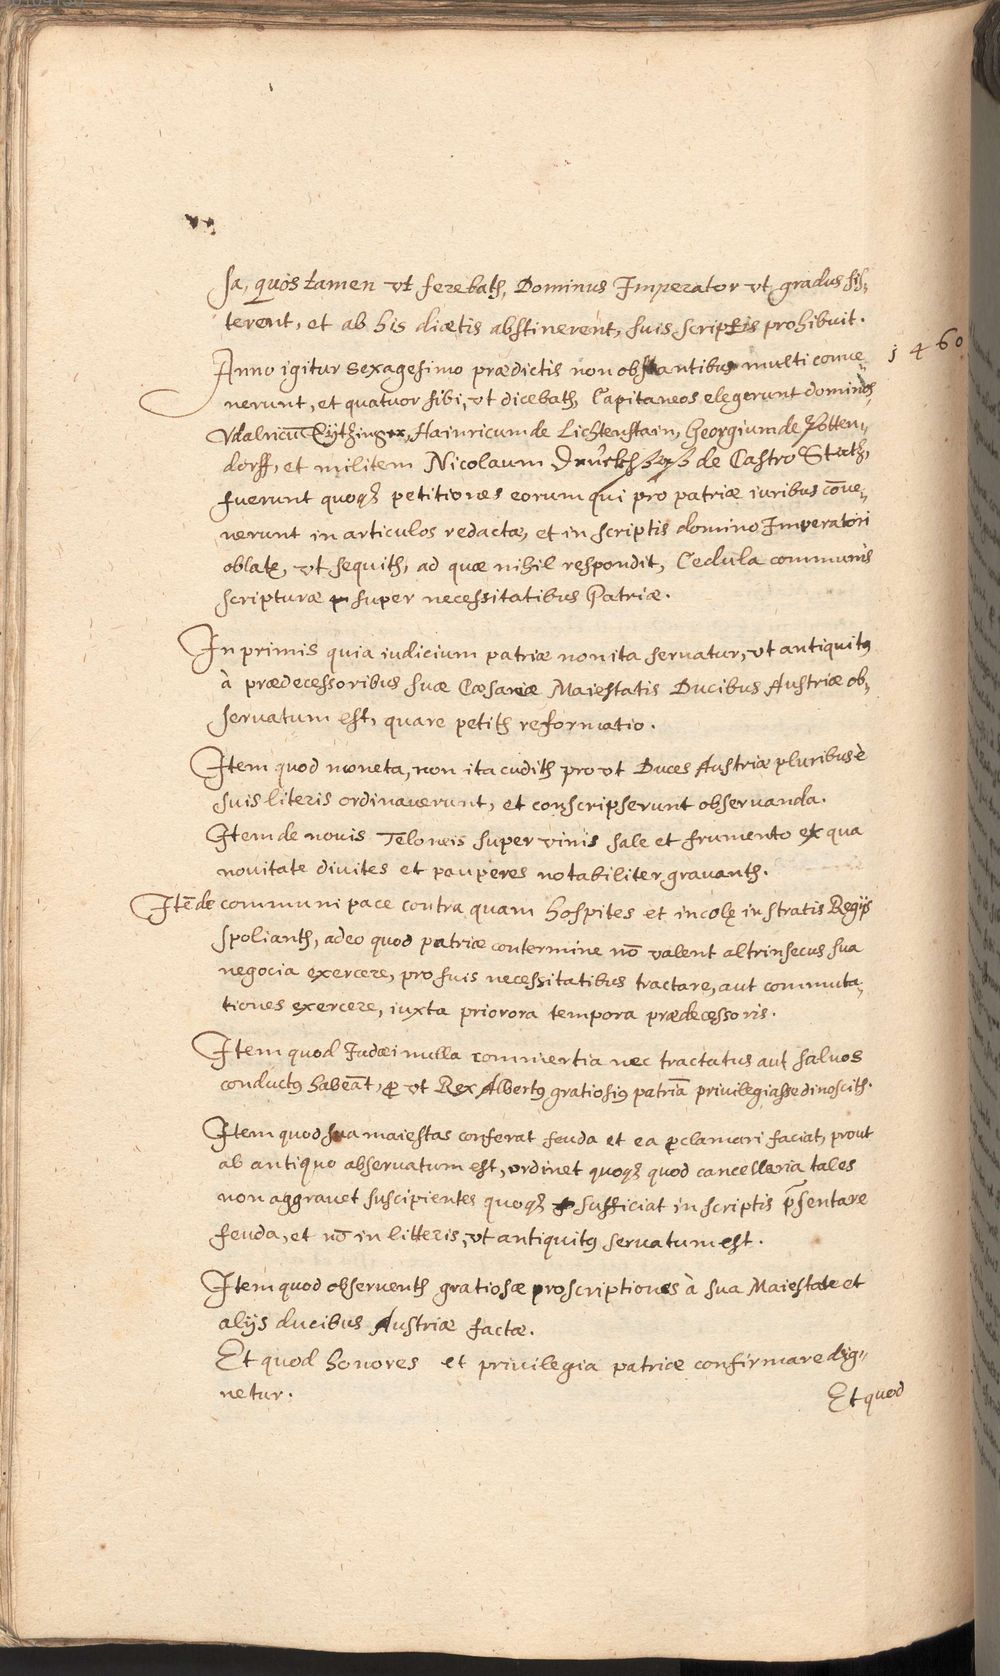 sa, quos tamen vt ferebatr, Dominus Imperator vt gradus sis-
terent, et ab his diætis abstinerent, suis scriptis prohibuit.
Anno igitur sexagesimo prædictis non obstantibus multi conue-
nerunt, et quatuor sibi, vt dicebatr, Capitaneos elegerunt dominos
1460
Vdalricū Eÿtzinger, Hainricum de Lichtenstain, Georgium de Potten-
dorff, et militem Nicolaum de Castro Steetz,
fuerunt quoqʒ petitiones eorum qui pro patriæ iuribus cōue-
nerunt in articulos redactæ, et in scriptis domino Imperatori
oblatę, vt sequitr, ad quæ nihil respondit, Cedula communis
scripturæ super necessitatibus Patriæ.
In primis quia iudicium patriæ non ita seruatur, vt antiquitꝰ
à prædecessoribus suæ Cæsariæ Maiestatis Ducibus Austriæ ob-
seruatum est, quare petitr reformatio.
Item quod moneta, non ita cuditr pro vt Duces Austriæ pluribus è
suis literis ordinauerunt, et conscripserunt obseruanda.
Item de nouis Teloneis super vinis sale et frumento ex qua
nouitate diuites et pauperes notabiliter grauantr.
Itē de communi pace contra quam hospites et incolę in stratis Regijs
spoliantr, adeo quod patriæ contermine nō valent altrinsecus sua
negocia exercere, pro suis necessitatibus tractare, aut commuta-
tiones exercere, iuxta priorora tempora prædecessoris.
Item quod Judæi nulla commertia nec tractatus aut saluos
conductꝰ habeāt, ꝓ vt Rex Albertꝰ gratiosiꝰ patriā priuilegiasse dinoscitr.
Item quod sua maiestas conferat feuda et ea ꝓclamari faciat, prout
ab antiquo obseruatum est, ordinet quoqʒ quod cancellaria tales
non aggrauet suscipientes quoqʒ sufficiat in scriptis p̄sentare
feuda, et nō in litteris, vt antiquitꝰ seruatum est.
Item quod obseruentr gratiosæ proscriptiones à sua Maiestate et
alijs ducibus Austriæ factæ.
Et quod honores et priuilegia patriæ confirmare dig-
netur.
Et quod